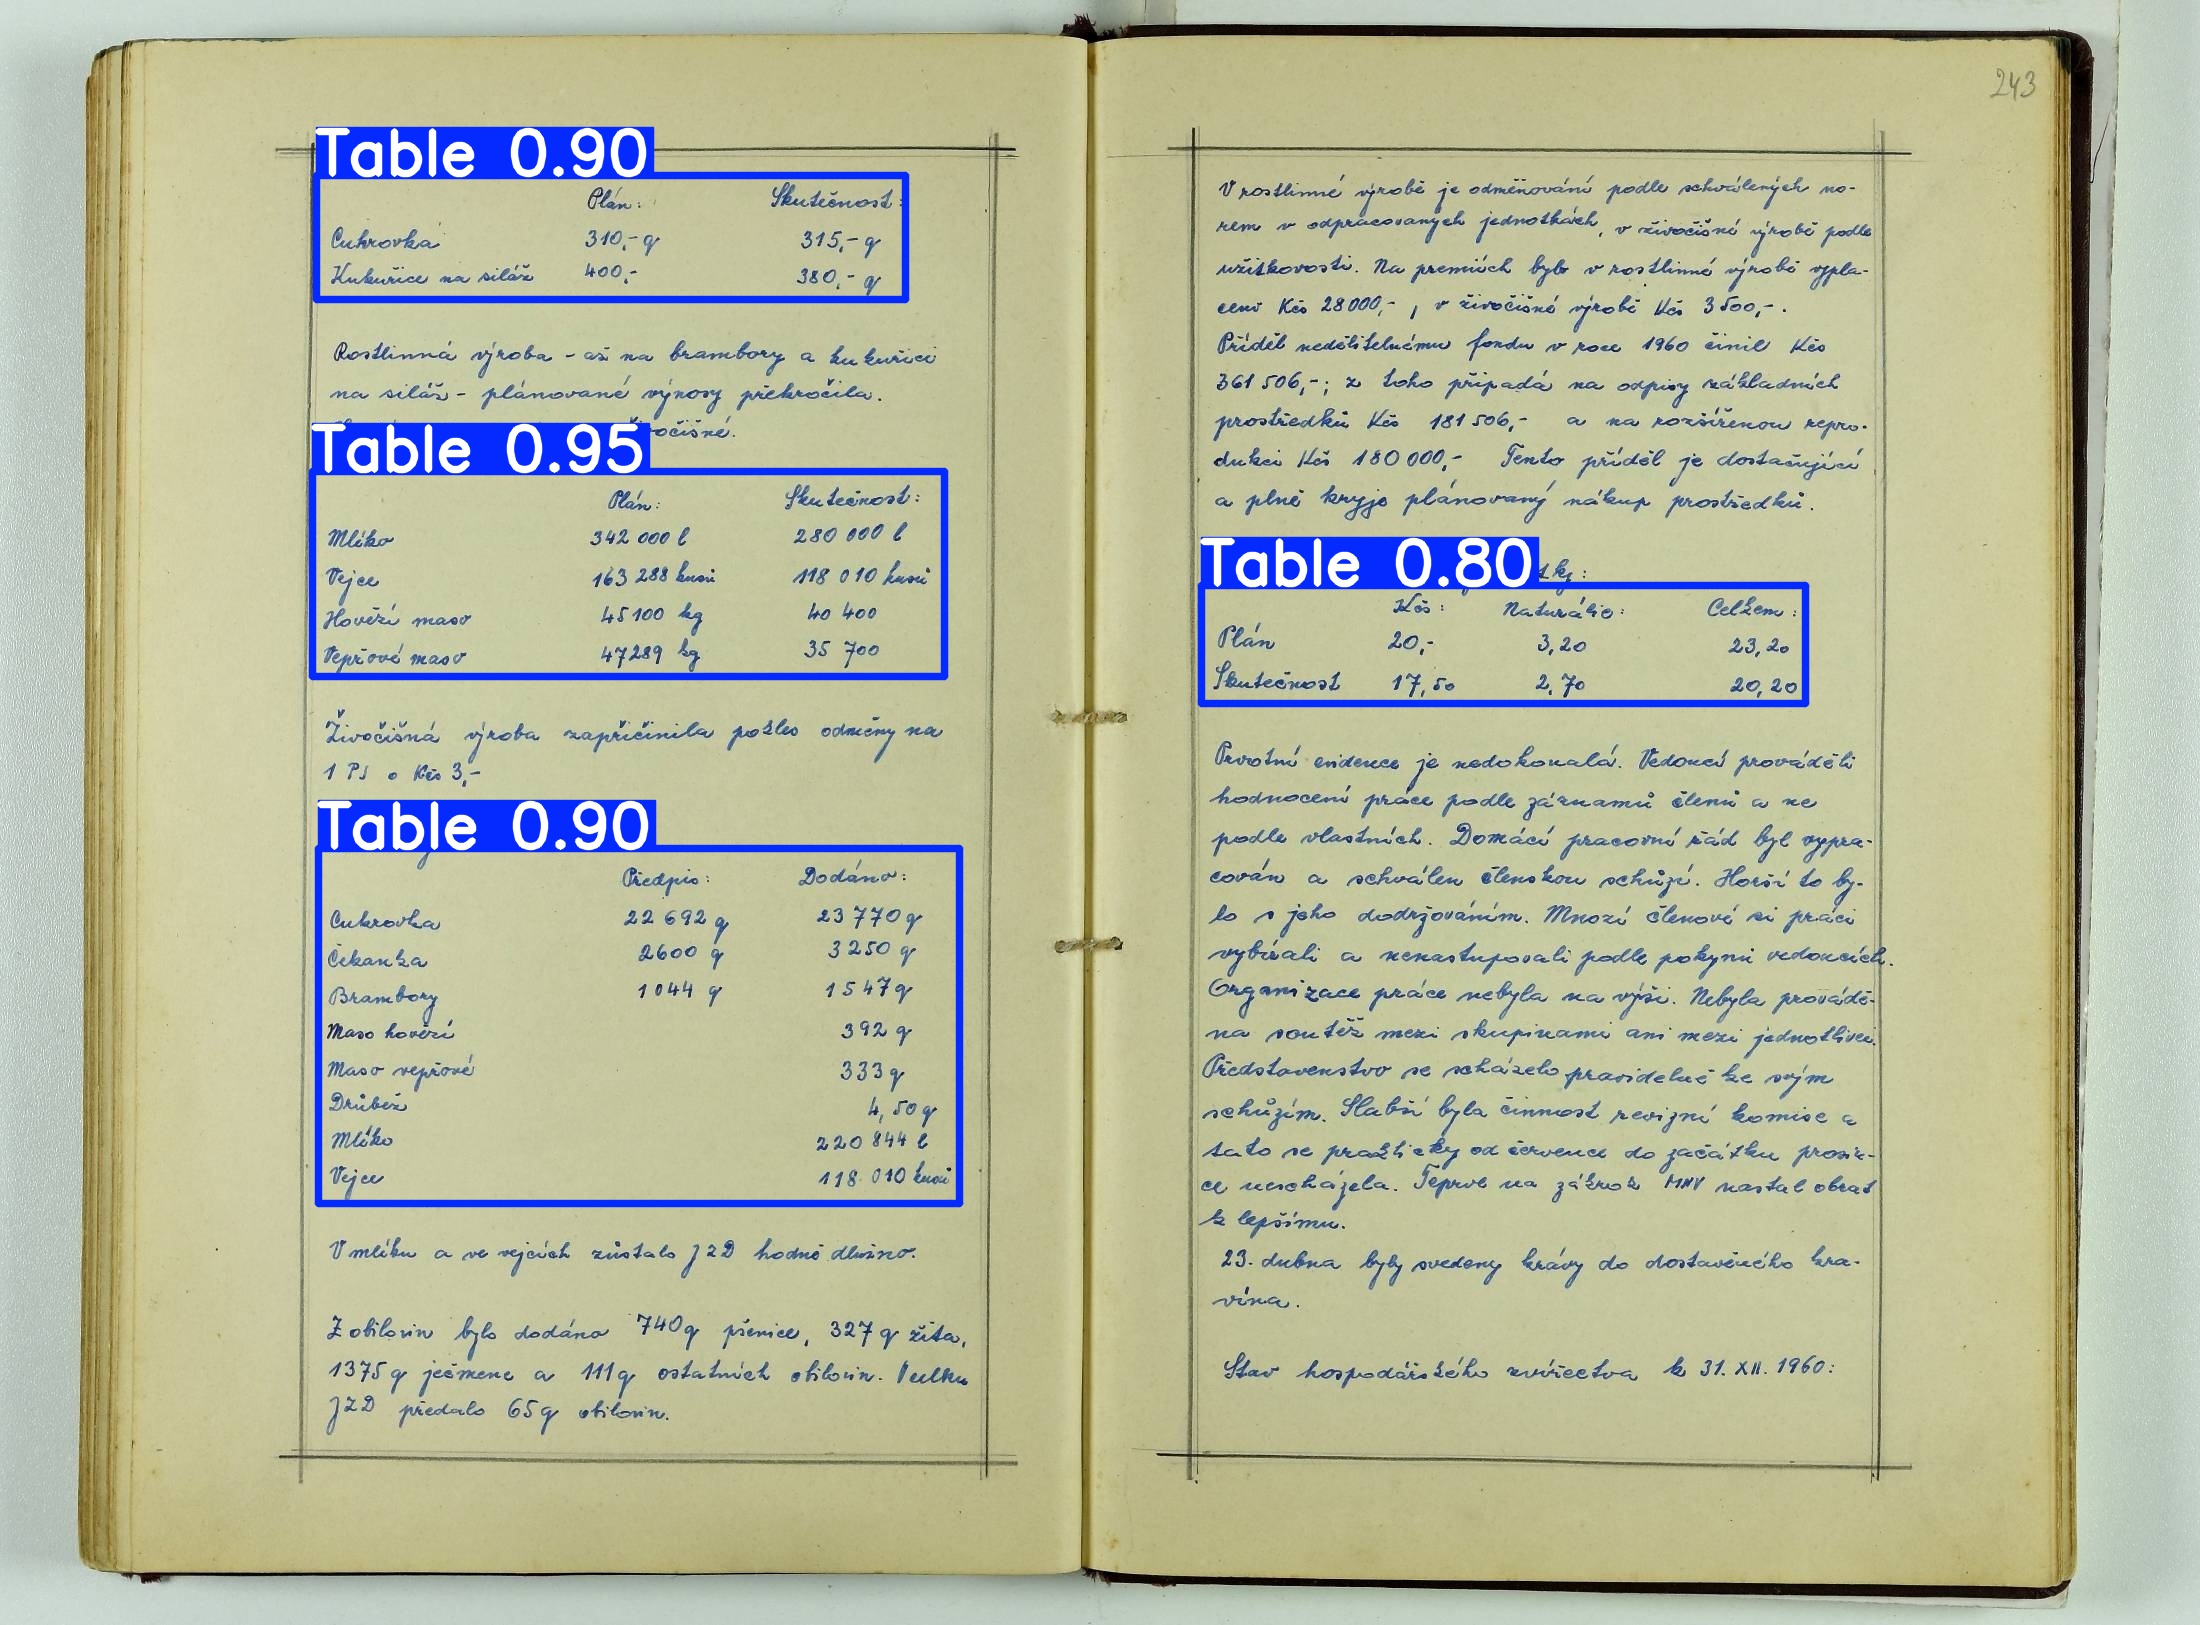 Table 0.90
Plán: Skutečnost:
Cukrovka 310,- q 315,- q
Kukuřice na siláž 400,- 380,- q
Rostlinná výroba - až na brambory a kukuřici
na siláž - plánované výnosy překročila.
Table 0.95
Plán: Skutečnost:
Mléko 342 000 l 280 000 l
Vejce 163 288 kusů 118 010 kusů
Hovězí maso 45 100 kg 40 400
Vepřové maso 47289 kg 35 700
Živočišná výroba zapříčinila pokles odměny na
1 PJ o Kčs 3,-
Table 0.90
Předpis: Dodáno:
Cukrovka 22 692 q 23 770 q
Čekanka 2600 q 3250 q
Brambory 1044 q 1547 q
Maso hovězí 392 q
Maso vepřové 333 q
Drůbež 4,50 q
Mléko 220 844 l
Vejce 118 010 kusů
V mléku a ve vejcích zůstalo JZD hodně dlužno.
Z obilovin bylo dodáno 740 q pšenice, 327 q žita,
1375 q ječmene a 111 q ostatních obilovin.
JZD předalo 65 q obilovin.
243
V rostlinné výrobě je odměňování podle schválených no-
rem v odpracovaných jednotkách, v živočišné výrobě podle
užitkovosti. Na premiích bylo v rostlinné výrobě vypla-
ceno Kčs 28000,-, v živočišné výrobě Kčs 3500,-.
Příděl nedělitelnému fondu v roce 1960 činil Kčs
361 506,-; z toho připadá na odpisy základních
prostředků Kčs 181 506,- a na rozšířenou repro-
dukci Kčs 180 000,- Tento příděl je dostačující
a plně kryje plánovaný nákup prostředků.
Table 0.80
Kčs: Naturálie: Celkem:
Plán 20,- 3,20 23,20
Skutečnost 17,50 2,70 20,20
Prvotní evidence je nedokonalá. Vedoucí prováděli
hodnocení práce podle záznamů členů a ne
podle vlastních. Domácí pracovní řád byl vypra-
cován a schválen členskou schůzí. Horší to by-
lo s jeho dodržováním. Mnozí členové si práci
vybírali a nenastupovali podle pokynů vedoucích.
Organizace práce nebyla na výši. Nebyla provádě-
na soutěž mezi skupinami ani mezi jednotlivci.
Představenstvo se scházelo pravidelně ke svým
schůzím. Slabší byla činnost revizní komise a
tato se prakticky od července do začátku prosin-
ce nescházela. Teprve na zákrok MNV nastal obrat
k lepšímu.
23. dubna byly svedeny krávy do dostavěného kra-
vína.
Stav hospodářského zvířectva k 31. XII. 1960: